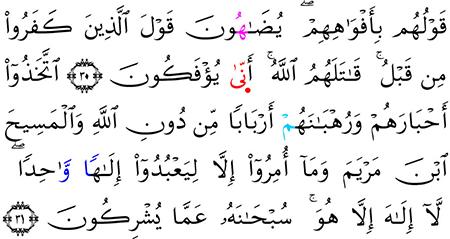 قَوْلُهُم بِأَفْوَٰهِهِمْ ۖ يُضَٰهُونَ قَوْلَ ٱلَّذِينَ كَفَرُوا۟
مِن قَبْلُ ۚ قَٰتَلَهُمُ ٱللَّهُ ۚ أَنَّىٰ يُؤْفَكُونَ ٣٠ ٱتَّخَذُوٓا۟
أَحْبَارَهُمْ وَرُهْبَٰنَهُمْ أَرْبَابًا مِّن دُونِ ٱللَّهِ وَٱلْمَسِيحَ
ٱبْنَ مَرْيَمَ وَمَآ أُمِرُوٓا۟ إِلَّا لِيَعْبُدُوٓا۟ إِلَٰهًا وَٰحِدًا ۖ
لَّآ إِلَٰهَ إِلَّا هُوَ ۚ سُبْحَٰنَهُۥ عَمَّا يُشْرِكُونَ ٣١